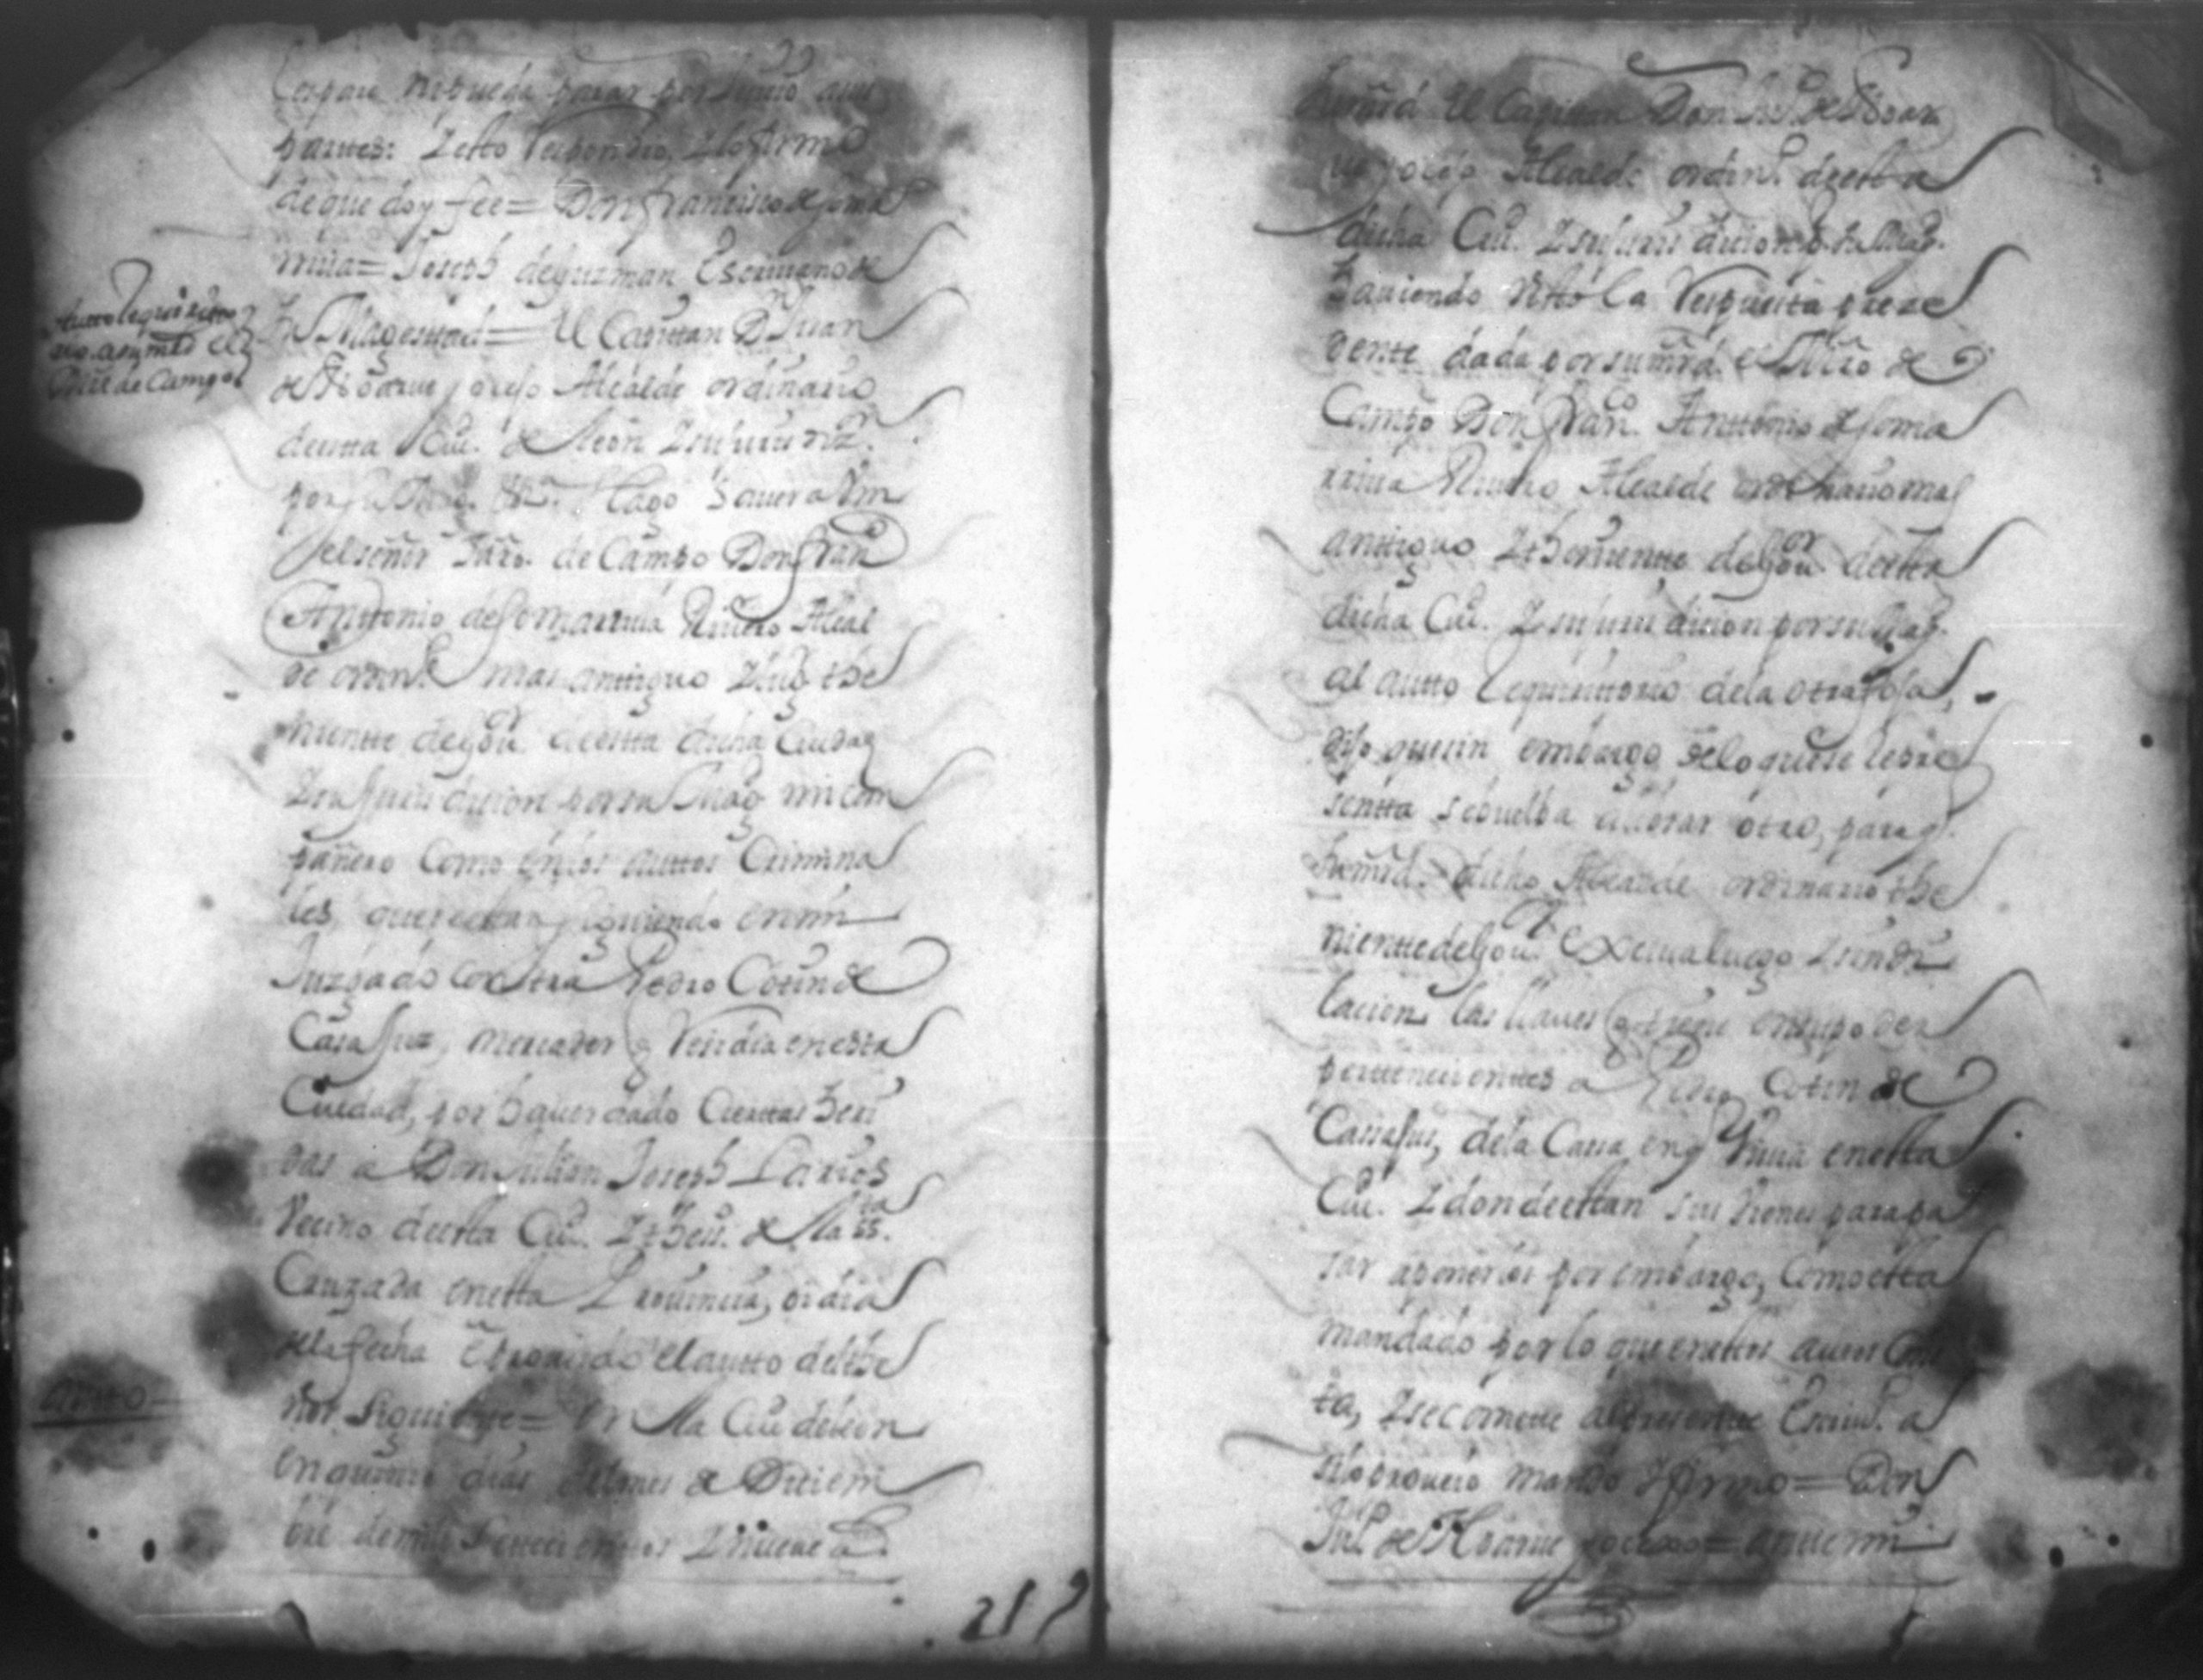 pueda parar por
partes: Yesto Respondio, Ylo firmo
de que doy fee = Don francisco de Soma
rriua = Joseph de guzman Escriuano de
Su Magestad = El Capitan D. Juan
de Alcalde ordinario
desta Ciu. de Leon Y su juridiz.
por su Mag. Hago Sauer a Vm
el señor de Campo Don fran.co
Anttonio de Somarriua Riuero Alcal
de ordin.o mas anttiguo Y the
niente de gou.or deestta dicha Ciudad
Y su Jurisdicion por su Mag. mi com
pañero Como en los auttos Crimina
les que se estan siguiendo en mi
Juzgado contra Pedro Cotin de
Casafus, mercader q Residia en esta
Ciudad, por hauer dado Ciertas heri
das a Don Julian Joseph Larios
Vecino deesta Ciu. Y thess. de la ss.ta
Cruzada en esta Prouincia, oi dia
de la fecha e proueido el autto del the
nor siguiente = En la Ciu de leon
en quinze dias del mes de Diciem
bre de mill Settecientos Y nueue a.s
autto =
autto requisitorio
Campo
217
Su md El Capitan Don Ju.o de
Alcalde ordin.o deesta
dicha Ciu. Y su juris dicion p.r su Mag.
hauiendo Visto La Respuesta prese
dente dada por su md. el de
Campo Don fran.co Anttonio de Soma
rriua Riuero Alcalde ordinario mas
anttiguo Y theniente de gou.or deesta
dicha Ciu. Y su juris dicion por su Mag.
al autto Requisitorio de la otra foja,
dijo que sin embargo de lo que se Repre
sentta se buelba a librar otro, para q.
su md. dicho Alcalde ordinario the
niente de gou.or Exciua luego Y sin di
lacion las llaues q tiene en su poder
pertenecientes a Pedro Cotin de
Cassafus, de la Cassa en q Viuia en esta
Ciu. Y donde estan sus Vienes para pa
sar a ponerlos por embargo, Como esta
mandado por lo que en estos autos Cons
ta, Y se comette al pressente Escriu.o a
si lo proueio mando Y firmo = Don
Ju.o de = antte mi